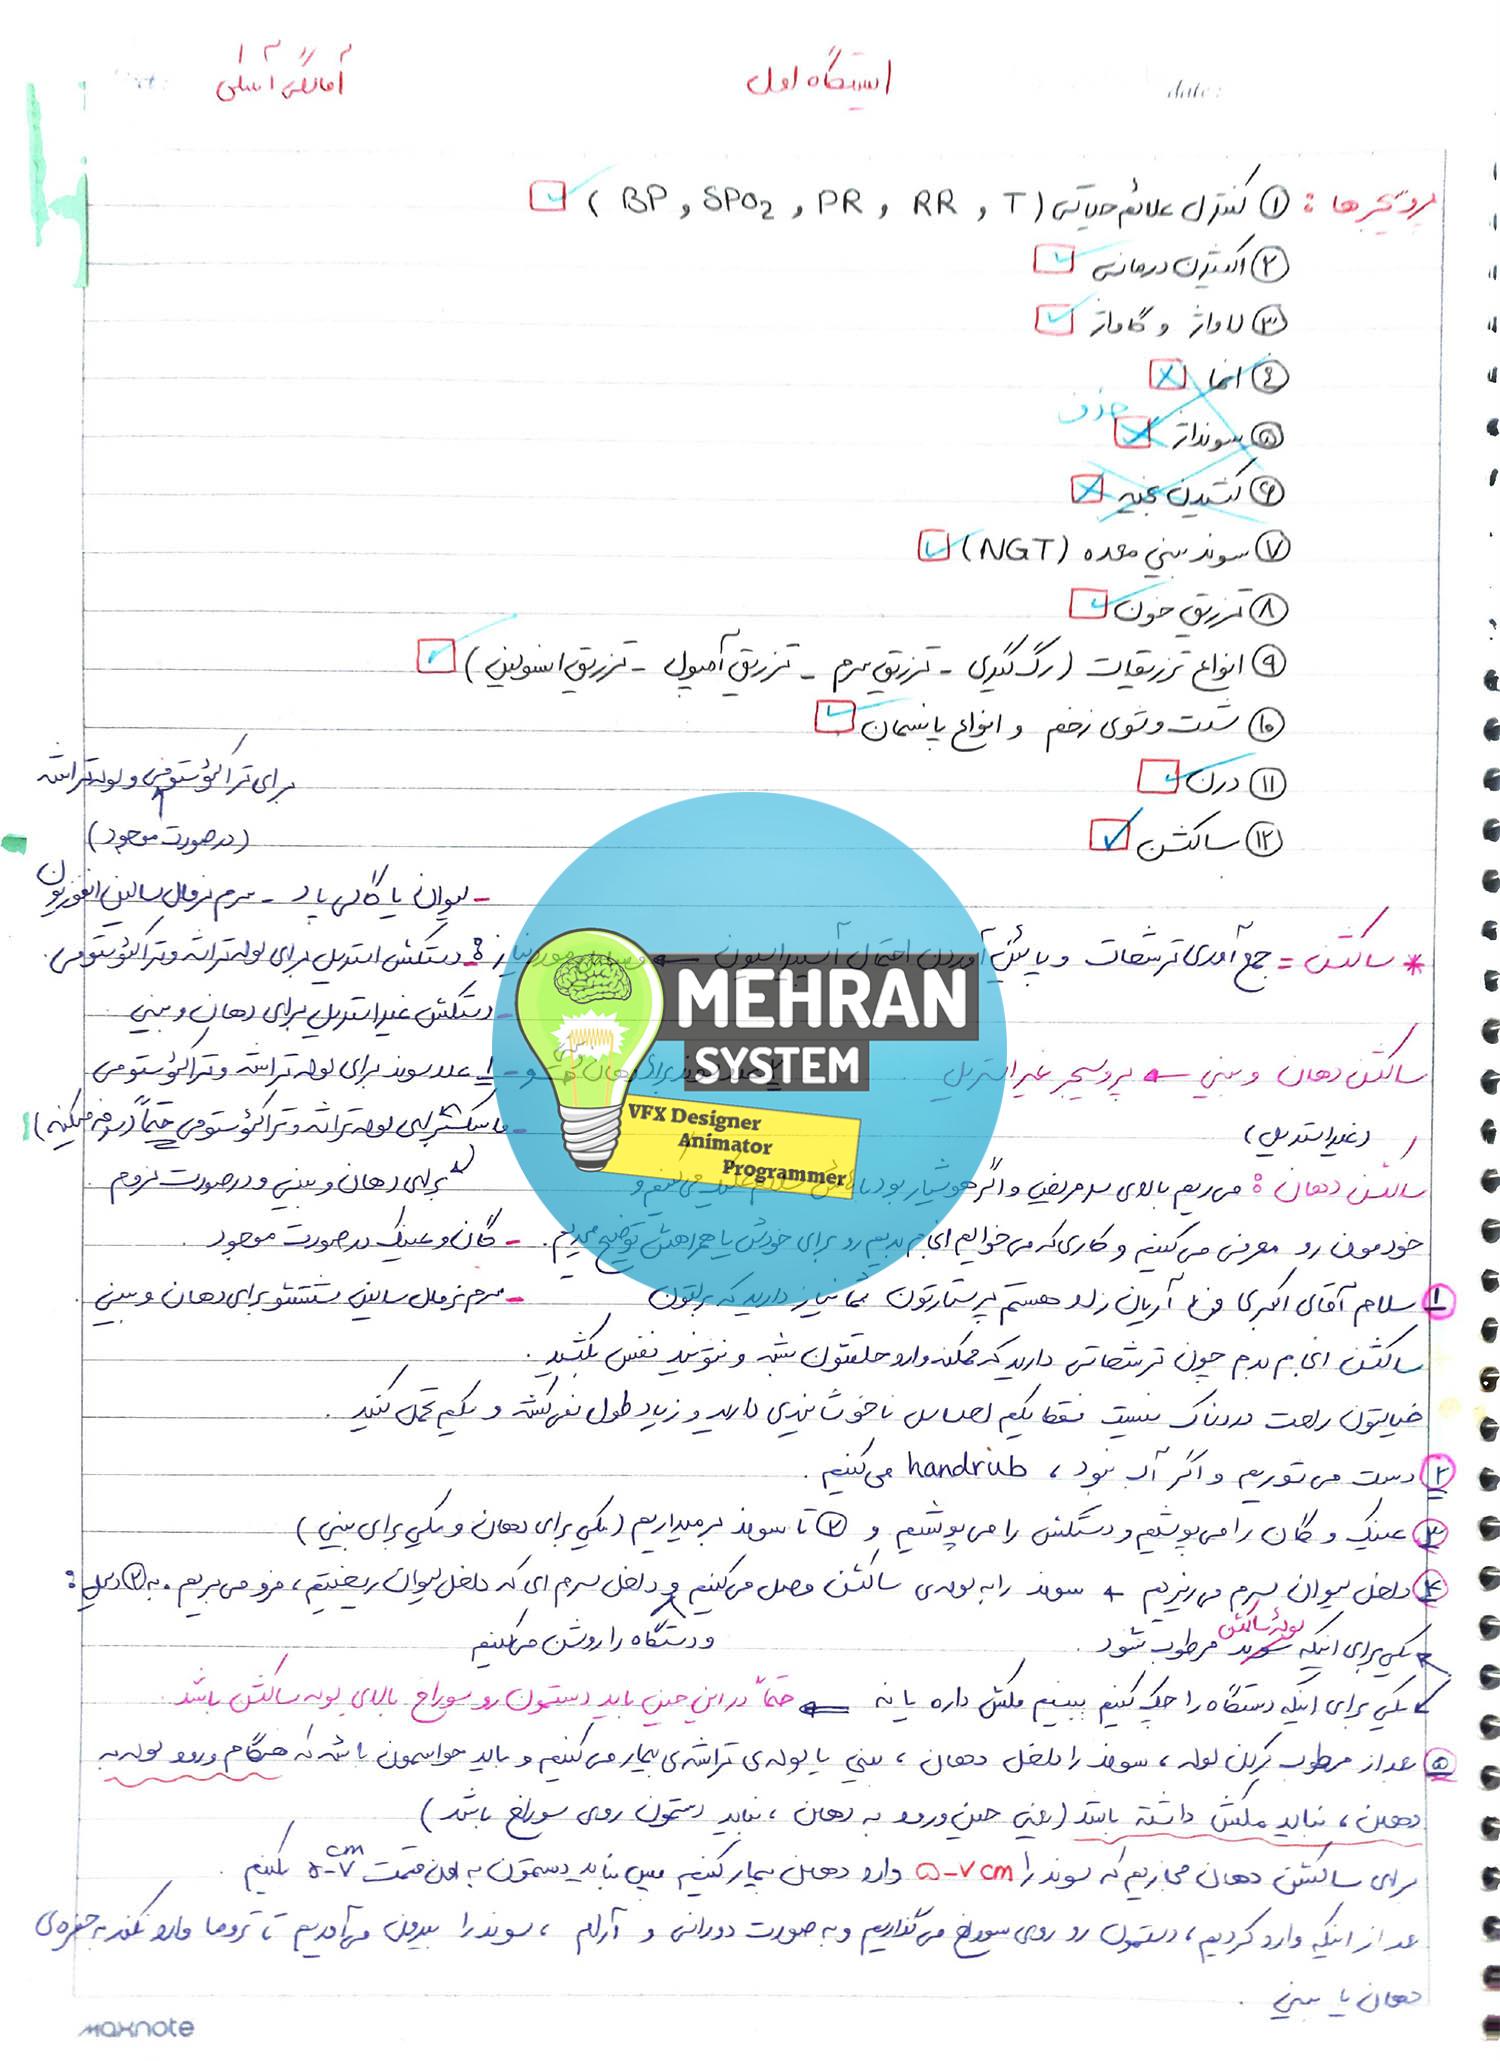 ایستگاه اول
date:
پروسیجرها : ① کنترل علائم حیاتی ( BP , SPO2 , PR , RR , T )
② اکسیژن درمانی
③ لاواژ و گاواژ
④ انما
حذف
⑤ سونداژ
⑥ کشیدن بخیه
⑦ سوند بینی معده (NGT)
⑧ تزریق خون
⑨ انواع تزریقات ( رگ گیری - تزریق سرم - تزریق آمپول - تزریق انسولین )
⑩ شست و شوی زخم و انواع پانسمان
برای تراکئوستومی و لوله تراشه
⑪ درن
(در صورت موجود)
⑫ ساکشن
- لیوان یا گالی پاد - سرم نرمال سالین انفوزیون
* ساکشن = جمع آوری ترشحات و پایین آوردن احتمال آسپیراسیون ← وسایل مورد نیاز : - دستکش استریل برای لوله تراشه و تراکئوستومی .
- دستکش غیر استریل برای دهان و بینی
MEHRAN
SYSTEM
ساکشن دهان و بینی ← پروسیجر غیر استریل
- 1 عدد سوند برای لوله تراشه و تراکئوستومی
VFX Designer
Animator
Programmer
برای لوله تراشه و تراکئوستومی حتماً
(غیر استریل)
برای دهان و بینی و در صورت لزوم .
ساکشن دهان : می ریم بالای سر مریض و اگر هوشیار بود
خودمون رو معرفی می کنیم و کاری که می خوایم انجام بدیم رو برای خودش یا همراهش توضیح میدیم .
- گان و عینک در صورت موجود .
① سلام آقای اکبری من آریان زاده هستم پرستارتون شما نیاز دارید که براتون
- سرم نرمال سالین شستشو برای دهان و بینی .
ساکشن انجام بدم چون ترشحاتی دارید که ممکنه وارد حلقتون بشه و نتونید نفس بکشید .
خیالتون راحت دردناک نیست فقط یکم احساس ناخوشایندی دارید و زیاد طول نمی کشه و یکم تحمل کنید .
② دست می شوریم و اگر آب نبود ، handrub می کنیم .
③ عینک و گان را می پوشیم و دستکش را می پوشیم و ② تا سوند برمیداریم (یکی برای دهان و یکی برای بینی)
④ داخل لیوان سرم می ریزیم + سوند را به لوله ی ساکشن وصل می کنیم و داخل سرم ای که داخل لیوان ریختیم ، فرو می بریم . به ② دلیل :
و دستگاه را روشن می کنیم
یکی برای اینکه لوله ساکشن مرطوب شود .
یکی برای اینکه دستگاه را چک کنیم ببینیم مکش داره یا نه ← حتماً در این حین باید دستمون رو سوراخ بالای لوله ساکشن باشد .
⑤ بعد از مرطوب کردن لوله ، سوند را داخل دهان ، بینی یا لوله ی تراشه ی بیمار می کنیم و باید حواسمون باشه که هنگام ورود لوله به
دهان ، نباید مکش داشته باشد (یعنی حین ورود به دهان ، نباید دستمون روی سوراخ باشد)
برای ساکشن دهان مجازیم که سوند را ۵-۷ cm وارد دهان بیمار کنیم پس نباید دستمون به اون قسمت ۵-۷ cm بکنیم .
بعد از اینکه وارد کردیم ، دستمون رو روی سوراخ می گذاریم و به صورت دورانی و آرام ، سوند را بیرون می آوریم تا تروما وارد نکند به حفره ی
دهان یا بینی .
maxnote